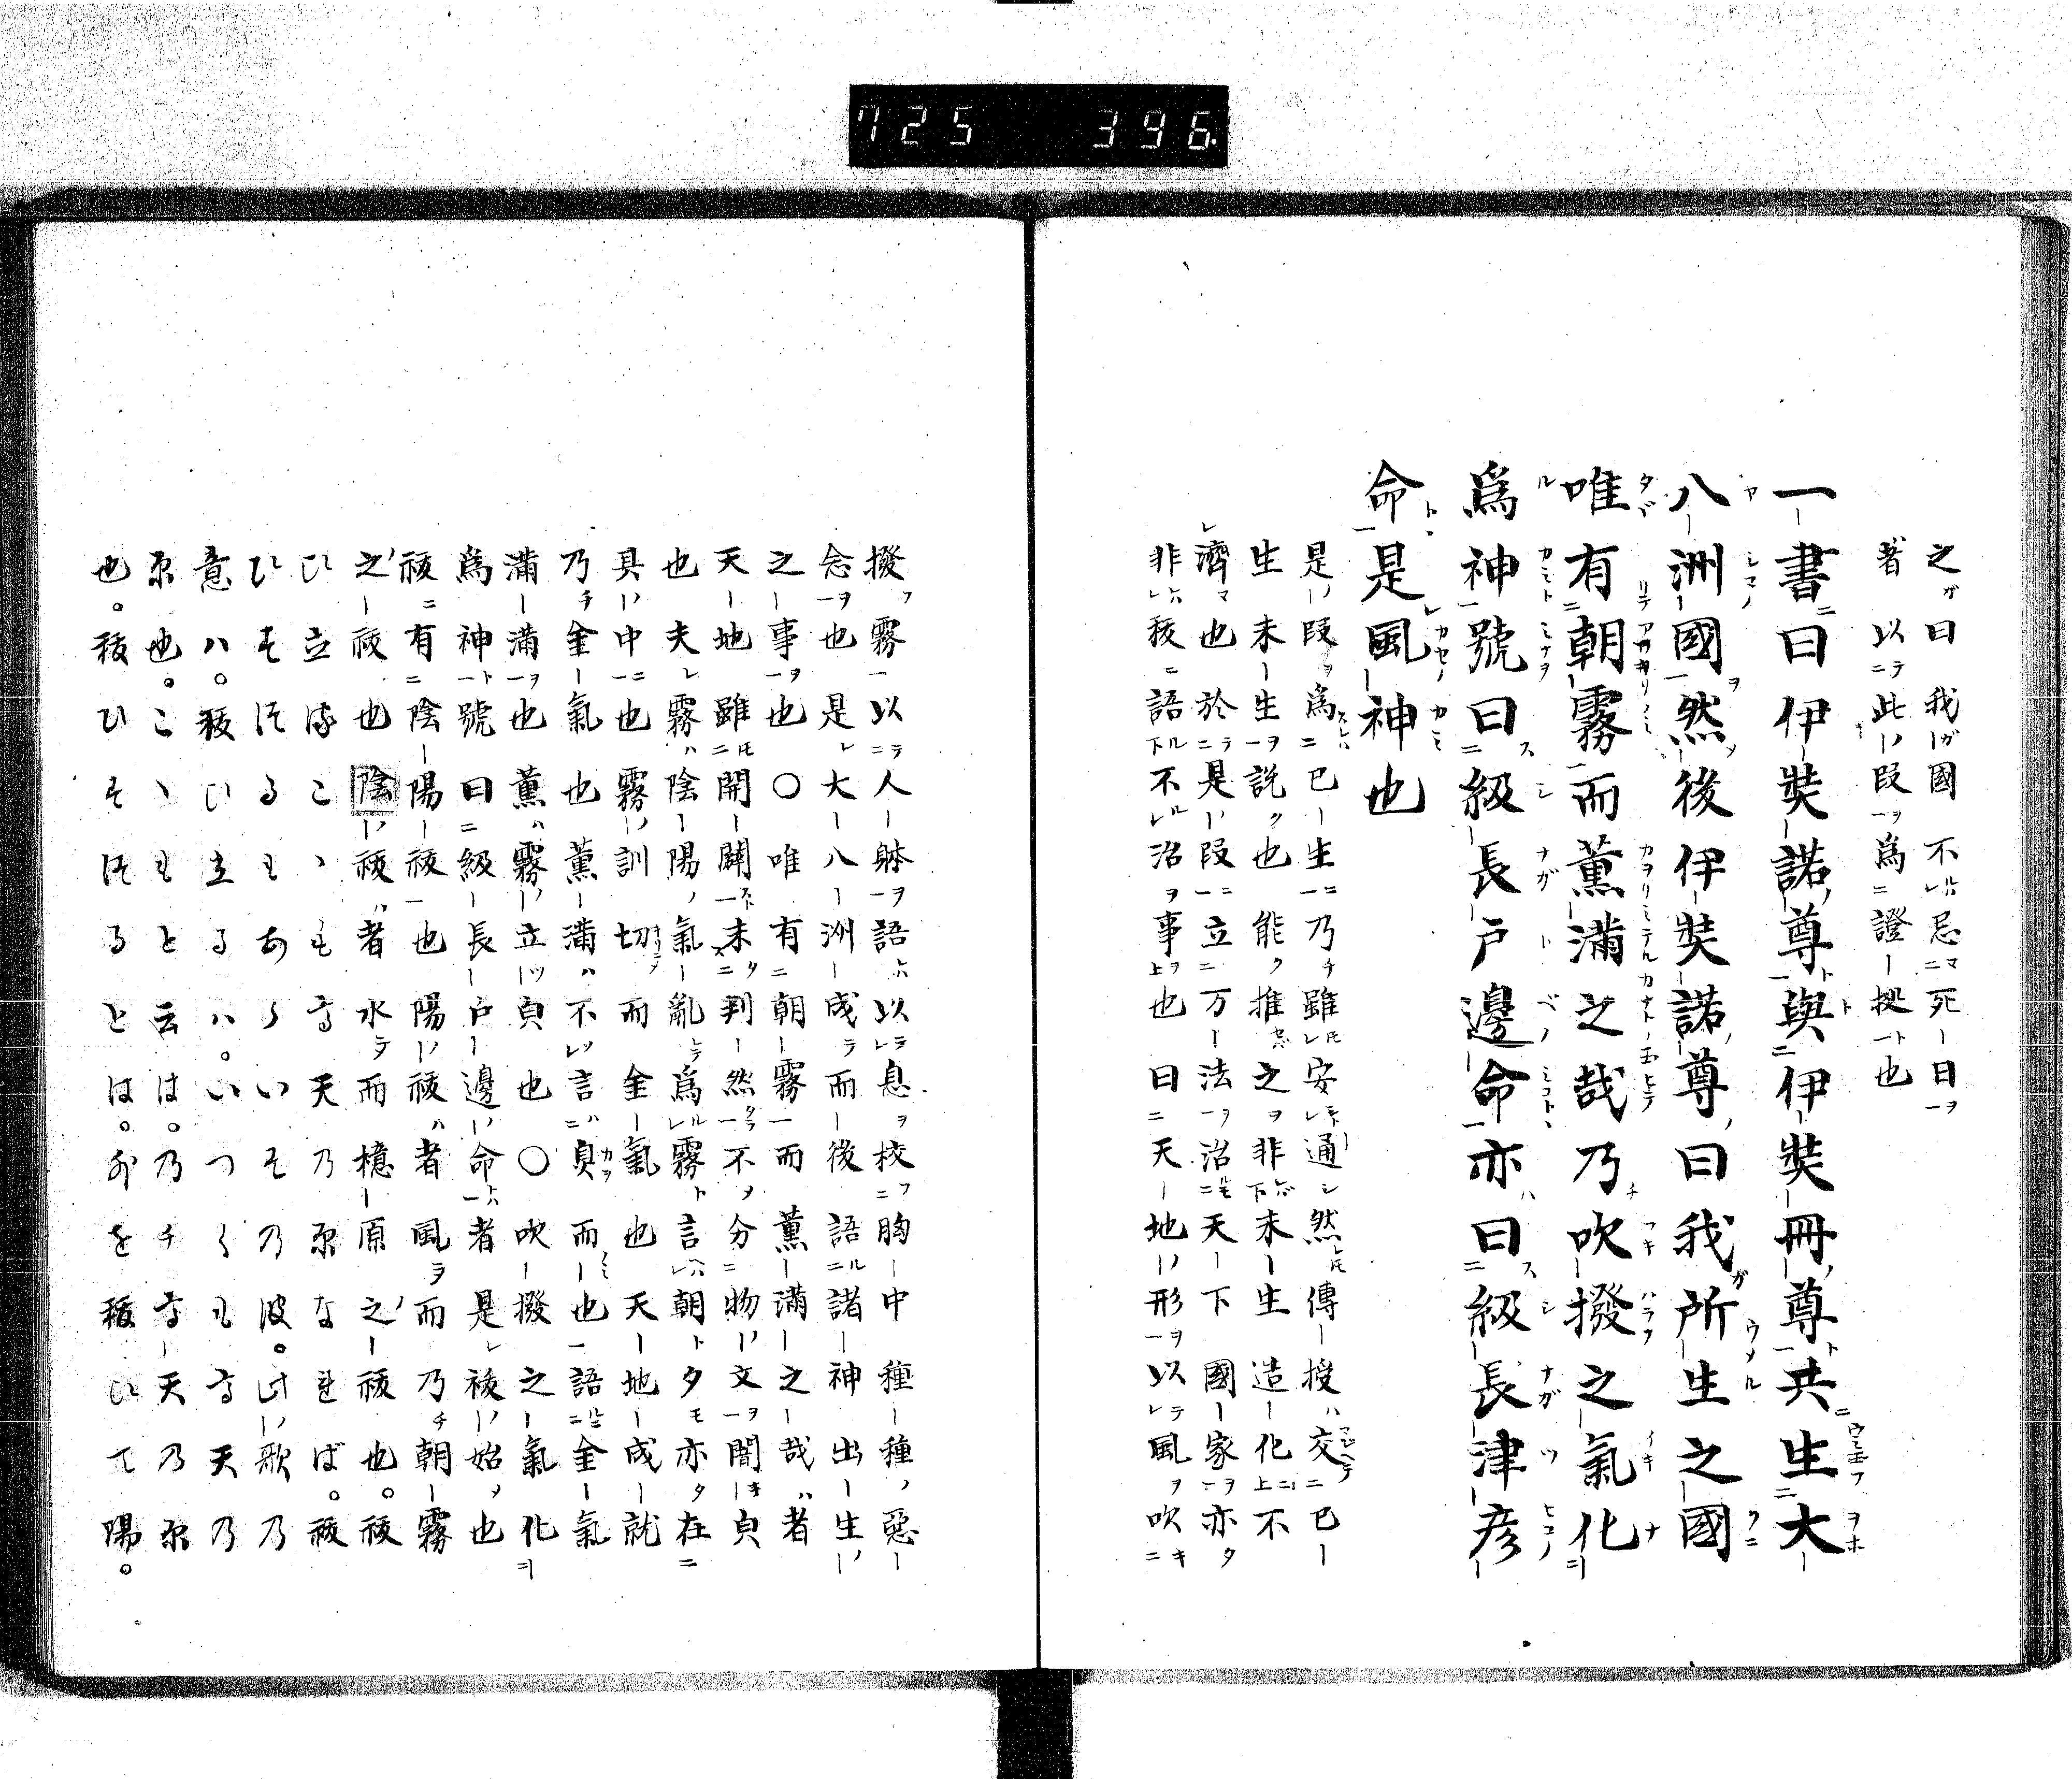 725 396
之曰我國不忌死日
者以此段爲證據也
一書曰伊奘諾尊與伊奘冊尊共生大
八洲國然後伊奘諾尊曰我所生之國
唯有朝霧而薫滿之哉乃吹撥之氣化
爲神號曰級長戸邊命亦曰級長津彦
命是風神也
是段爲已生乃雖安通然傳授交已
生未生説也能推之非未生造化不
濟也於是段立万法治天下國家亦
非祓語不治事也曰天地形以風吹
撥霧以人躰語以息校胸中種種惡
念也是大八洲成而後語諸神出生
之事也〇唯有朝霧而薫滿之哉者
天地雖開闢未判然不分物文闇貞
也夫霧陰陽氣亂爲霧言朝夕亦在
具中也霧訓切而金氣也天地成就
乃金氣也薫滿不言貞而也語金氣
滿滿也薫霧立貞也〇吹撥之氣化
爲神號曰級長戸邊命者是祓始也
祓有陰陽祓也陽祓者風而乃朝霧
之祓也陰祓者水而檍原之祓也祓
ひ立流こゝも高天乃原なれば。祓
ひもそするもあらいその波。此歌乃
意ハ。祓ひ立るハ。いつくも高天乃
原也。こゝもと云は。乃チ高天乃原
也。祓ひそするとは。外を祓ひて陽。